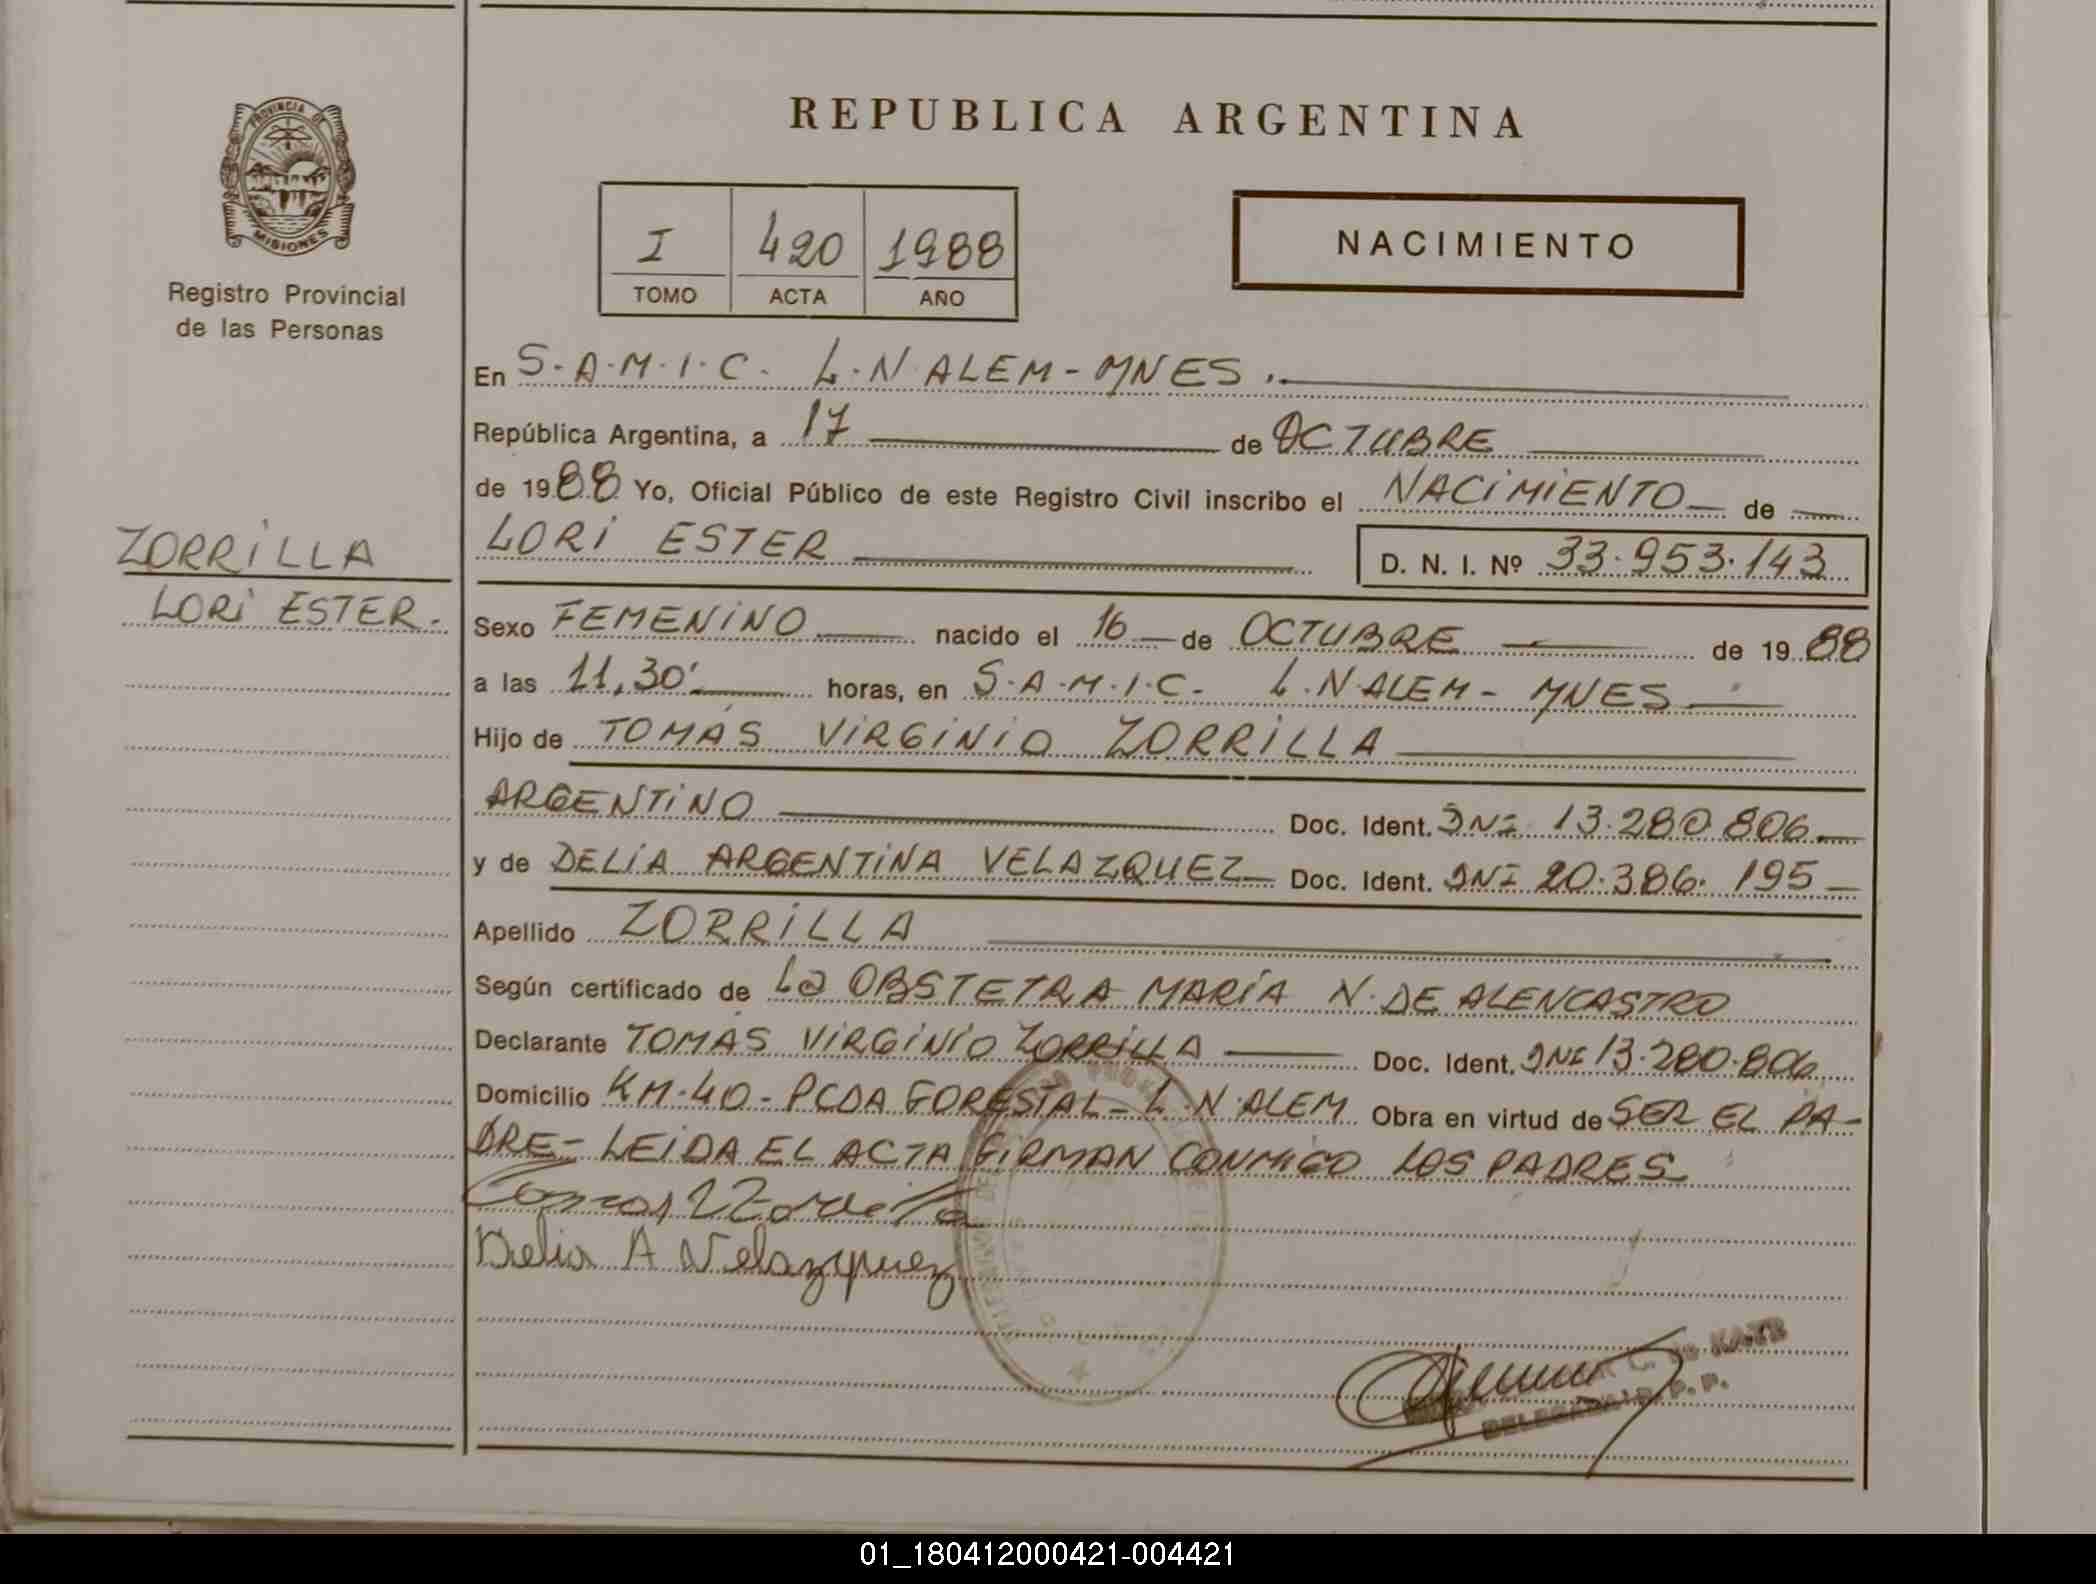 REPUBLICA ARGENTINA
PROVINCIA DE
MISIONES
Registro Provincial
de las Personas
I 420 1988
TOMO ACTA AÑO
NACIMIENTO
En S.A.M.I.C. L.N.ALEM-MNES.
República Argentina, a 17 de OCTUBRE
de 1988 Yo, Oficial Público de este Registro Civil inscribo el NACIMIENTO de
ZORRILLA
LORI ESTER.
LORI ESTER D. N. I. Nº 33.953.143
Sexo FEMENINO nacido el 16 de OCTUBRE de 1988
a las 11,30' horas, en S.A.M.I.C. L.N.ALEM- MNES
Hijo de TOMÁS VIRGINIO ZORRILLA
ARGENTINO Doc. Ident. DNI 13.280.806.
y de DELIA ARGENTINA VELAZQUEZ Doc. Ident. DNI 20.386.195
Apellido ZORRILLA
Según certificado de La OBSTETRA MARÍA N. DE ALENCASTRO
Declarante TOMÁS VIRGINIO ZORRILLA Doc. Ident. DNI 13.280.806
Domicilio KM.40-PCDA FORESTAL-L.N.ALEM Obra en virtud de SER EL PA-
DRE- LEIDA EL ACTA FIRMAN CONMIGO LOS PADRES
Delia A Velazquez
C. de KATZ
01_180412000421-004421